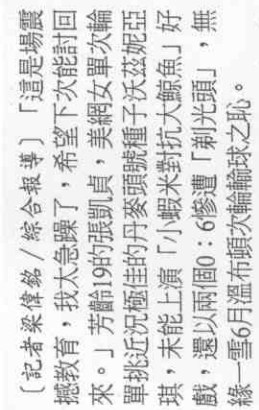 〔記者梁偉銘／綜合報導〕「這是場震
撼教育，我太急躁了，希望下次能討回
來。」芳齡19的張凱貞，美網女單次輪
單挑近況極佳的丹麥頭號種子沃茲妮亞
琪，未能上演「小蝦米對抗大鯨魚」好
戲，還以兩個0：6慘遭「剃光頭」，無
緣一雪6月溫布頓次輪輸球之恥。